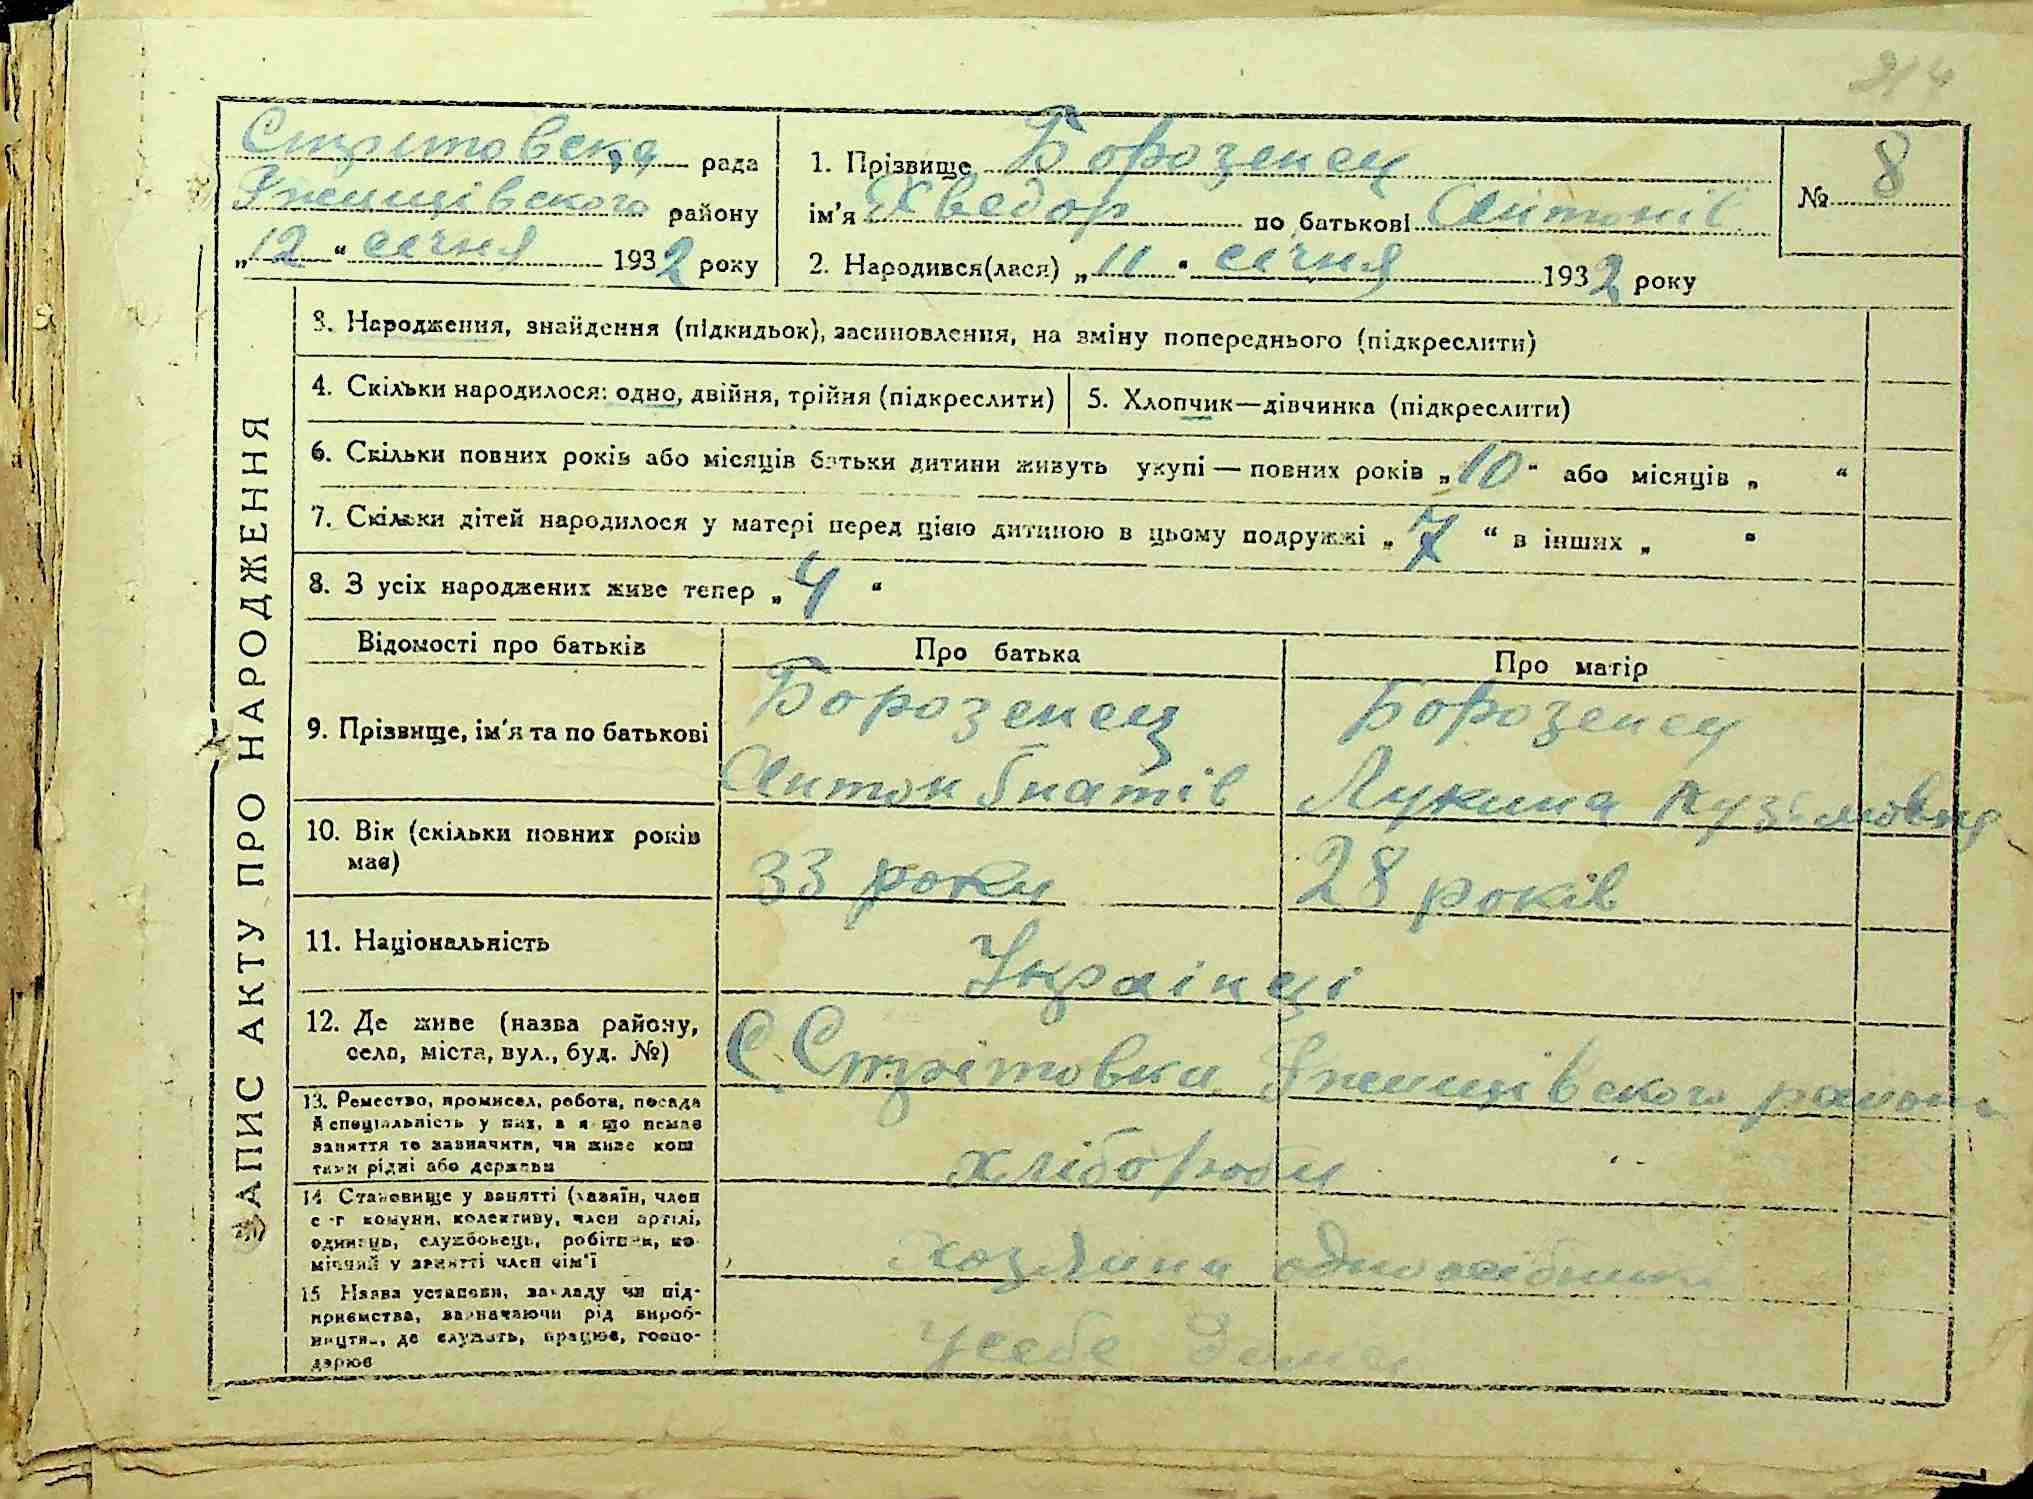 214
Стрітовська рада
Ржищівського району
„12“ січня 1932 року
1. Прізвище Борозенец
ім'я Хведор по батькові Антонів
2. Народився(лася) „11“ січня 1932 року
№ 8
ЗАПИС АКТУ ПРО НАРОДЖЕННЯ
3. Народження, знайдення (підкидьок), засиновлення, на зміну попереднього (підкреслити)
4. Скільки народилося: одно, двійня, трійня (підкреслити)
5. Хлопчик—дівчинка (підкреслити)
6. Скільки повних років або місяців батьки дитини живуть укупі — повних років „10“ або місяців „ “
7. Скільки дітей народилося у матері перед цією дитиною в цьому подружжі „7“ в інших „ “
8. З усіх народжених живе тепер „4“
Відомості про батьків
Про батька
Про матір
9. Прізвище, ім'я та по батькові
Борозенец
Антон Гнатів
Борозенец
Лукина Кузьмовна
10. Вік (скільки повних років
має)
33 роки
28 років
11. Національність
Українці
12. Де живе (назва району,
села, міста, вул., буд. №)
С. Стрітовка Ржищівського району
13. Ремество, промисел, робота, посада
й спеціяльність у них, а якщо немає
заняття то зазначити, чи живе кош
тами рідні або держави
хлібороби
14 Становище у занятті (хазяїн, член
с-г комуни, колективу, член артілі,
одинець, службовець, робітник, по-
мічний у занятті член сім'ї
хозяини одноосібники
15 Назва установи, закладу чи під-
приємства, зазначаючи рід вироб-
ництва, де служить, працює, госпо-
дарює
у себе дома